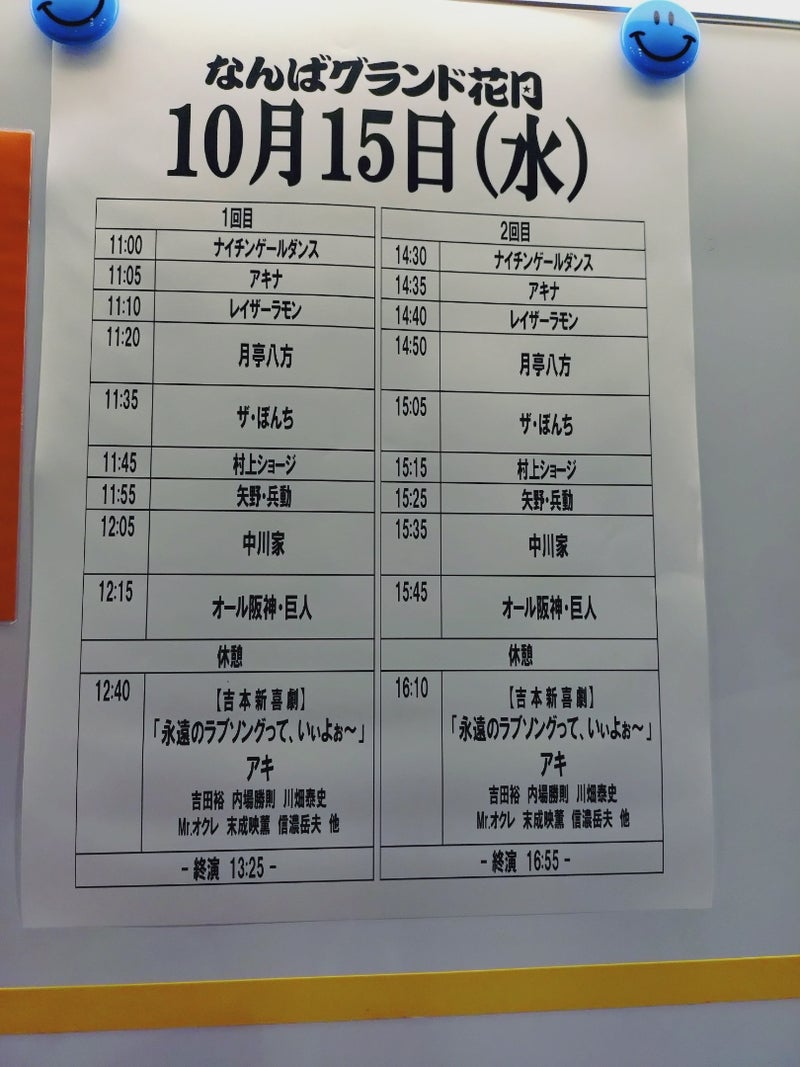 なんばグランド花月
10月15日(水)
1回目
11:00 ナイチンゲールダンス
11:05 アキナ
11:10 レイザーラモン
11:20 月亭八方
11:35 ザ・ぼんち
11:45 村上ショージ
11:55 矢野・兵動
12:05 中川家
12:15 オール阪神・巨人
休憩
12:40 【吉本新喜劇】
「永遠のラブソングって、いぃよぉ～」
アキ
吉田裕 内場勝則 川畑泰史
Mr.オクレ 末成映薫 信濃岳夫 他
- 終演 13:25 -
2回目
14:30 ナイチンゲールダンス
14:35 アキナ
14:40 レイザーラモン
14:50 月亭八方
15:05 ザ・ぼんち
15:15 村上ショージ
15:25 矢野・兵動
15:35 中川家
15:45 オール阪神・巨人
休憩
16:10 【吉本新喜劇】
「永遠のラブソングって、いぃよぉ～」
アキ
吉田裕 内場勝則 川畑泰史
Mr.オクレ 末成映薫 信濃岳夫 他
- 終演 16:55 -